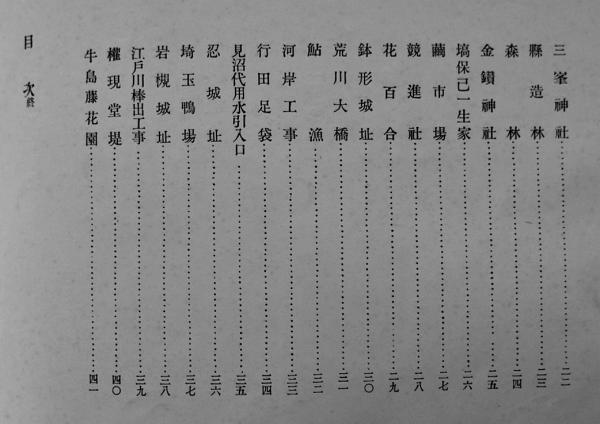 三峯神社……二二
縣造林……二三
森林……二四
金鑚神社……二五
塙保己一生家……二六
繭市場……二七
競進社……二八
花百合……二九
鉢形城址……三〇
荒川大橋……三一
鮎漁……三二
河岸工事……三三
行田足袋……三四
見沼代用水引入口……三五
忍城址……三六
埼玉鴨場……三七
岩槻城址……三八
江戸川棒出工事……三九
權現堂堤……四〇
牛島藤花園……四一
目次終